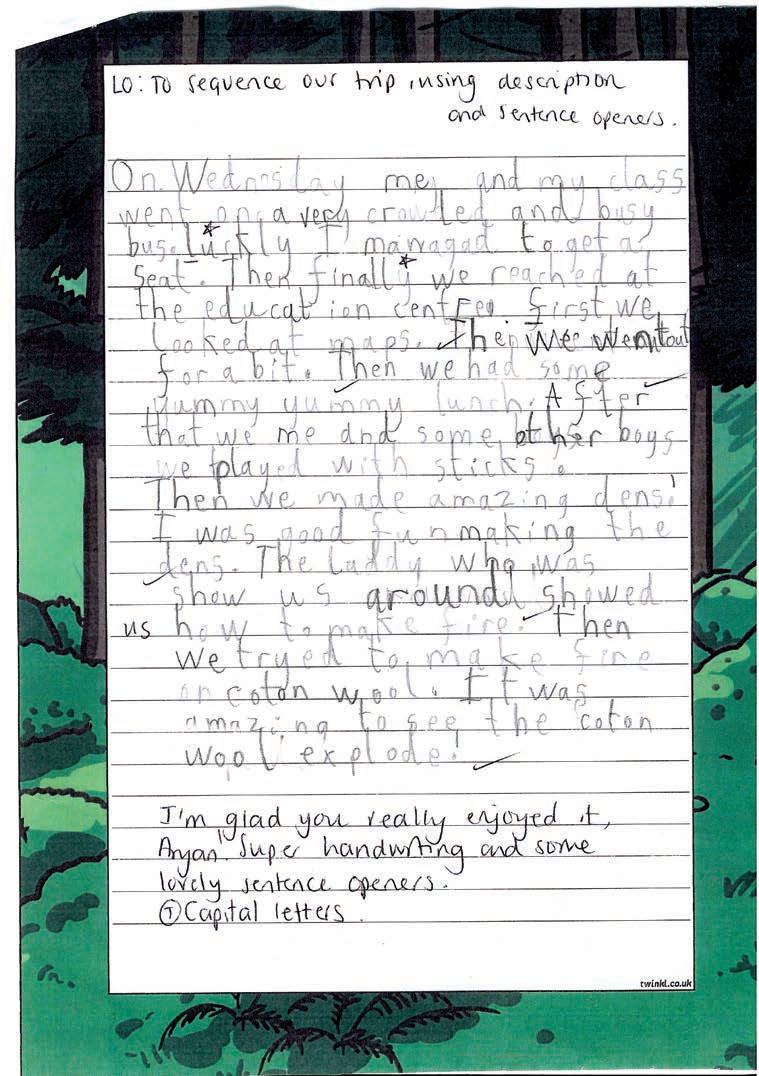 LO: To sequence our trip, using description
and sentence openers.
On Wednsday me, and my class
went on a very crowded and busy
bus. Luckly I managad to get a
seat. Then finally we reached at
the education centre. first we
looked at maps. Then we went out
for a bit. Then we had some
yummy yummy lunch. After
that we me and some other boys
we played with sticks.
Then we made amazing dens!
I was good fun making the
dens. The laddy who was
show us around showed
us how to make fire. Then
we tryed to make fire
on coton wool. It was
amazing to see the coton
wool explode!
I'm glad you really enjoyed it,
Aryan! Super handwriting and some
lovely sentence openers.
Ⓣ Capital letters.
twinkl.co.uk